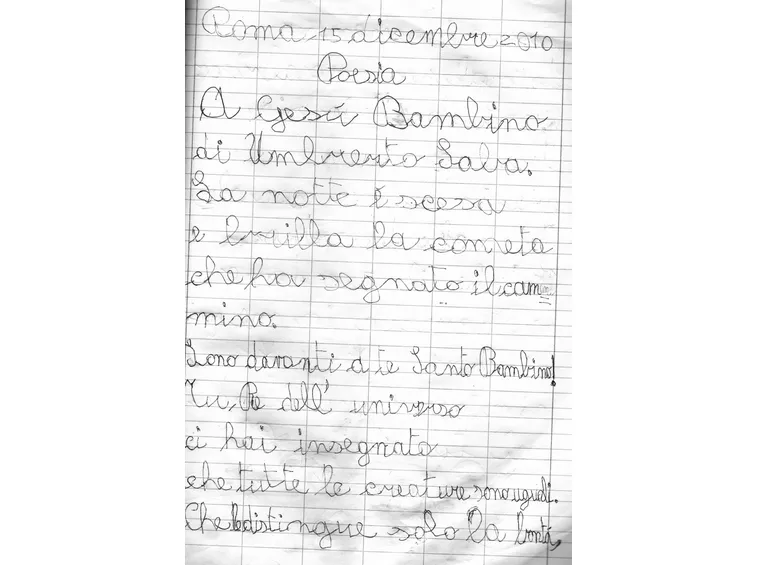 Roma 15 dicembre 2010
Poesia
A Gesù Bambino
di Umberto Saba.
La notte è scesa
e brilla la cometa
che ha segnato il cam=
mino.
Sono davanti a te Santo Bambino!
Tu, Re dell' universo
ci hai insegnato
che tutte le creature sono uguali.
Che le distingue solo la bontà,